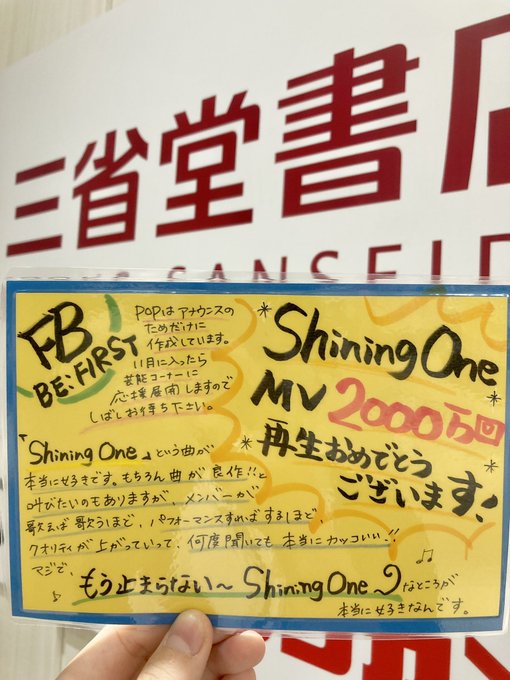 三省堂書店
BOOKS SANSEID
FB
BE:FIRST
POPは アナウンスの
ためだけに
作成しています。
11月に入ったら
芸能コーナーに
応援展開しますので
しばしお待ち下さい。
Shining One
MV 2000万回
再生おめでとう
ございます!
「Shining One」という曲が
本当に好きです。もちろん曲が良作!!と
叫びたいのもありますが、メンバーが
歌えば歌うほど、パフォーマンスすればするほど、
クオリティが上がっていって、何度聞いても本当にカッコいい!!
マジで、
もう止まらない〜 Shining One〜♪なところが
本当に好きなんです。